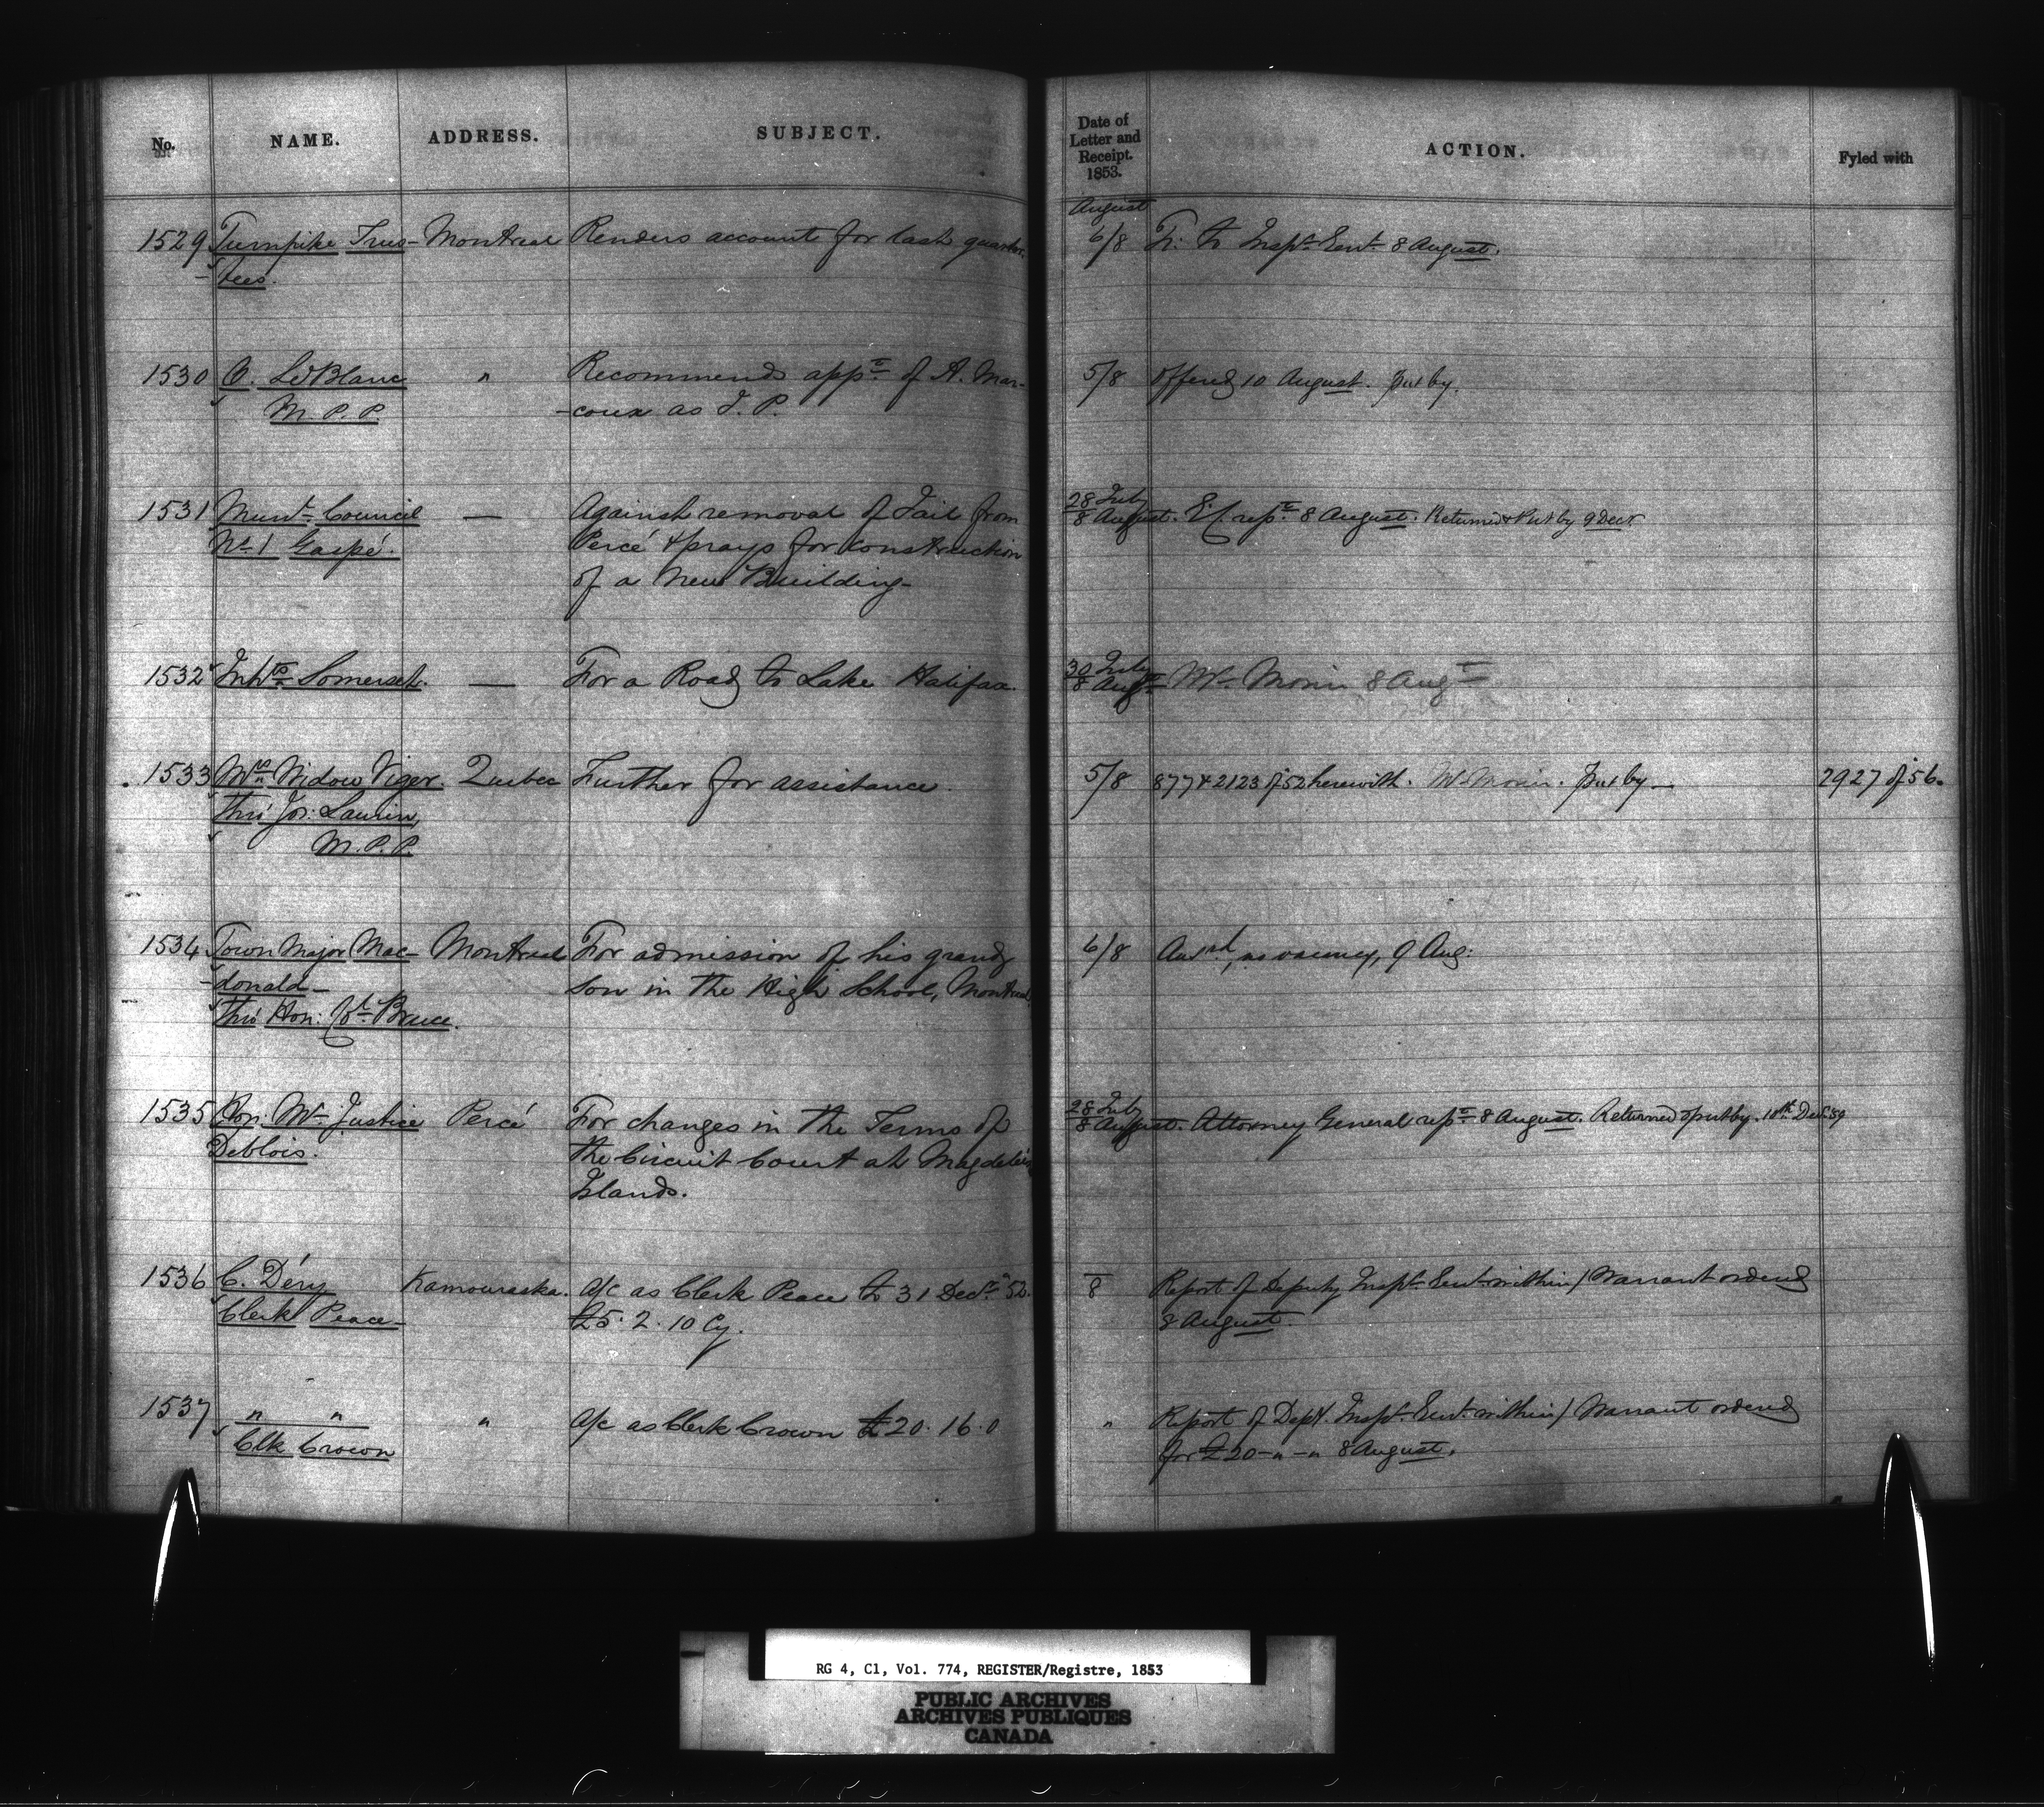 No. NAME. ADDRESS. SUBJECT. Date of Letter and Receipt. 1853. ACTION. Fyled with
August
1529 Turnpike Trus- Montreal Renders account for last quarter. 6/8 Tr. to Inspr. Genl. 8 August.
-tees.
1530 O. LeBlanc " Recommends appt. of A. Mar- 5/8 Offered 10 August. Put by.
M.P.P. -coux as J.P.
1531 Munl. Council — Against removal of Jail from 28 July
8 August. E.C. rept. 8 August. Returned & Put by 9 Decr.
No. 1 Gaspé. Percé & prays for construction
of a New Building-
1532 Inhts. Somerset. — For a Road to Lake Halifax. 30 July
8 Augt. Mr. Morin 8 Augt.
1533 Widow Viger. Quebec Further for assistance. 5/8 877 & 2123 of 52 herewith. Mr. Morin. Put by — 2927 of 56.
thro' Jos: Laurin,
M.P.P.
1534 Town Major Mac- Montreal For admission of his grand 6/8 Ansrd., no vacancy, 9 Aug:
-donald- son in the High School, Montreal
thro' Hon: Bruce.
1535 Hon: Mr. Justice Percé For changes in the Terms of 28 July
8 August. Attorney General rept. 8 August. Returned & put by. 10th Decr. 59
Deblois. the Circuit Court at Magdalen
Islands.
1536 C. Déry Kamouraska. A/c as Clerk Peace to 31 Decr. 52. 8 Report of Deputy Inspr. Genl. within / Warrant ordered
Clerk Peace- £5. 2. 10 Cy. 8 August.
1537 " " " A/c as Clerk Crown £20. 16. 0 " Report of Depy. Inspr. Genl. within / Warrant ordered
Clk Crown for £20-"-" 8 August.
RG 4, C1, Vol. 774, REGISTER/Registre, 1853
PUBLIC ARCHIVES
ARCHIVES PUBLIQUES
CANADA